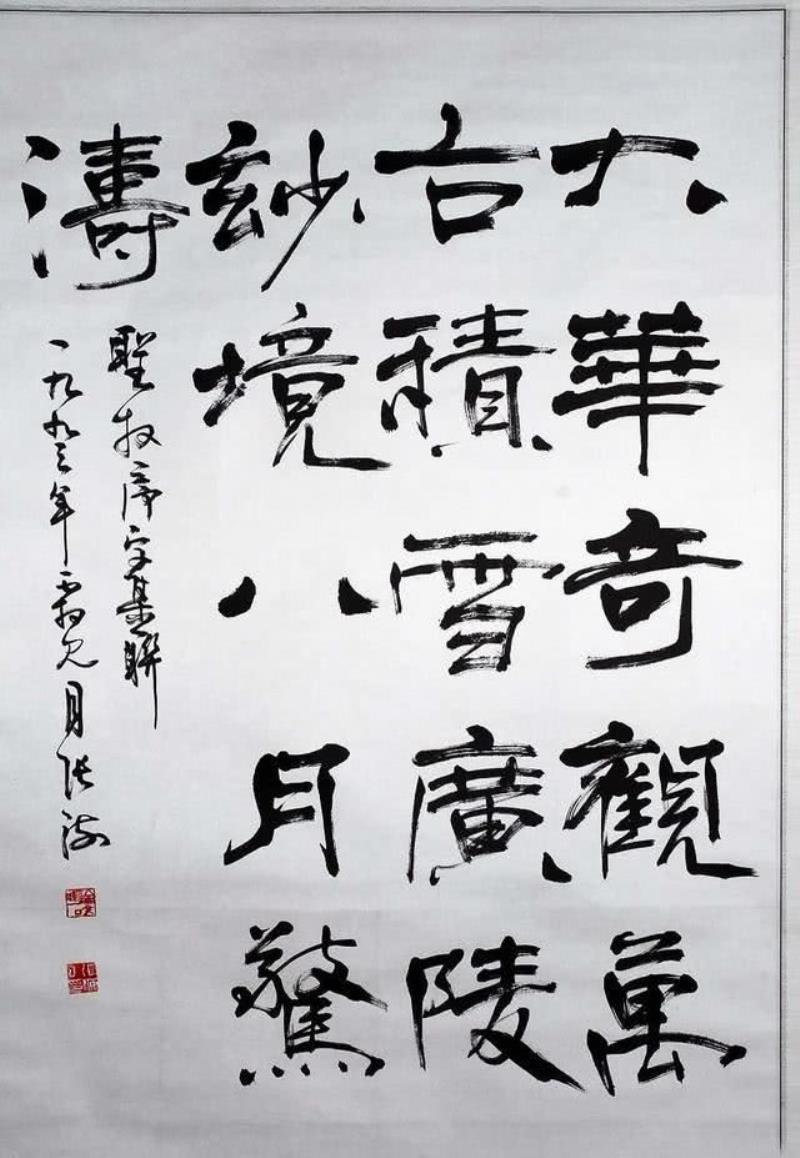 大華奇觀萬
古積雪廣陵
玅境八月驚
濤
聖教序字集聯
一九九三年霜見月張海